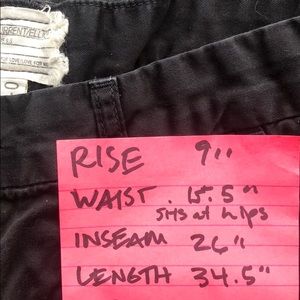 CURRENT/ELLIOTT
0
RISE 9"
WAIST . 15.5"
SITS at hips
INSEAM 26"
LENGTH 34.5"